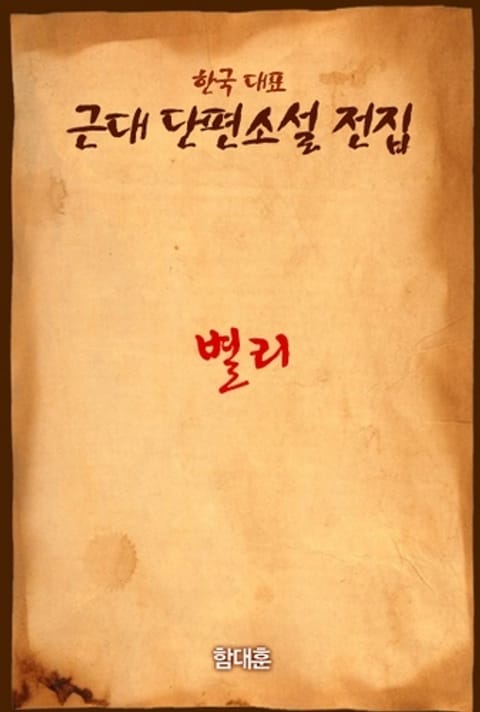 한국 대표
근대 단편소설 전집
별리
함대훈